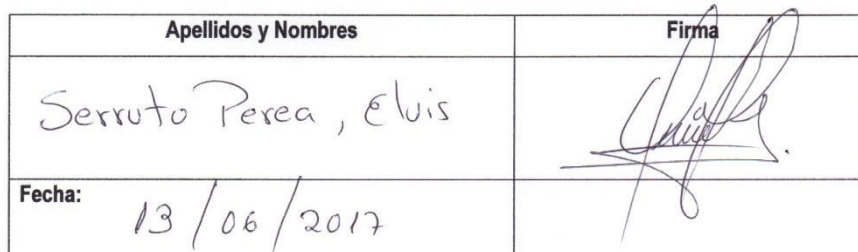 Apellidos y Nombres
Firma
Serruto Perea, Elvis
Fecha:
13/06/2017